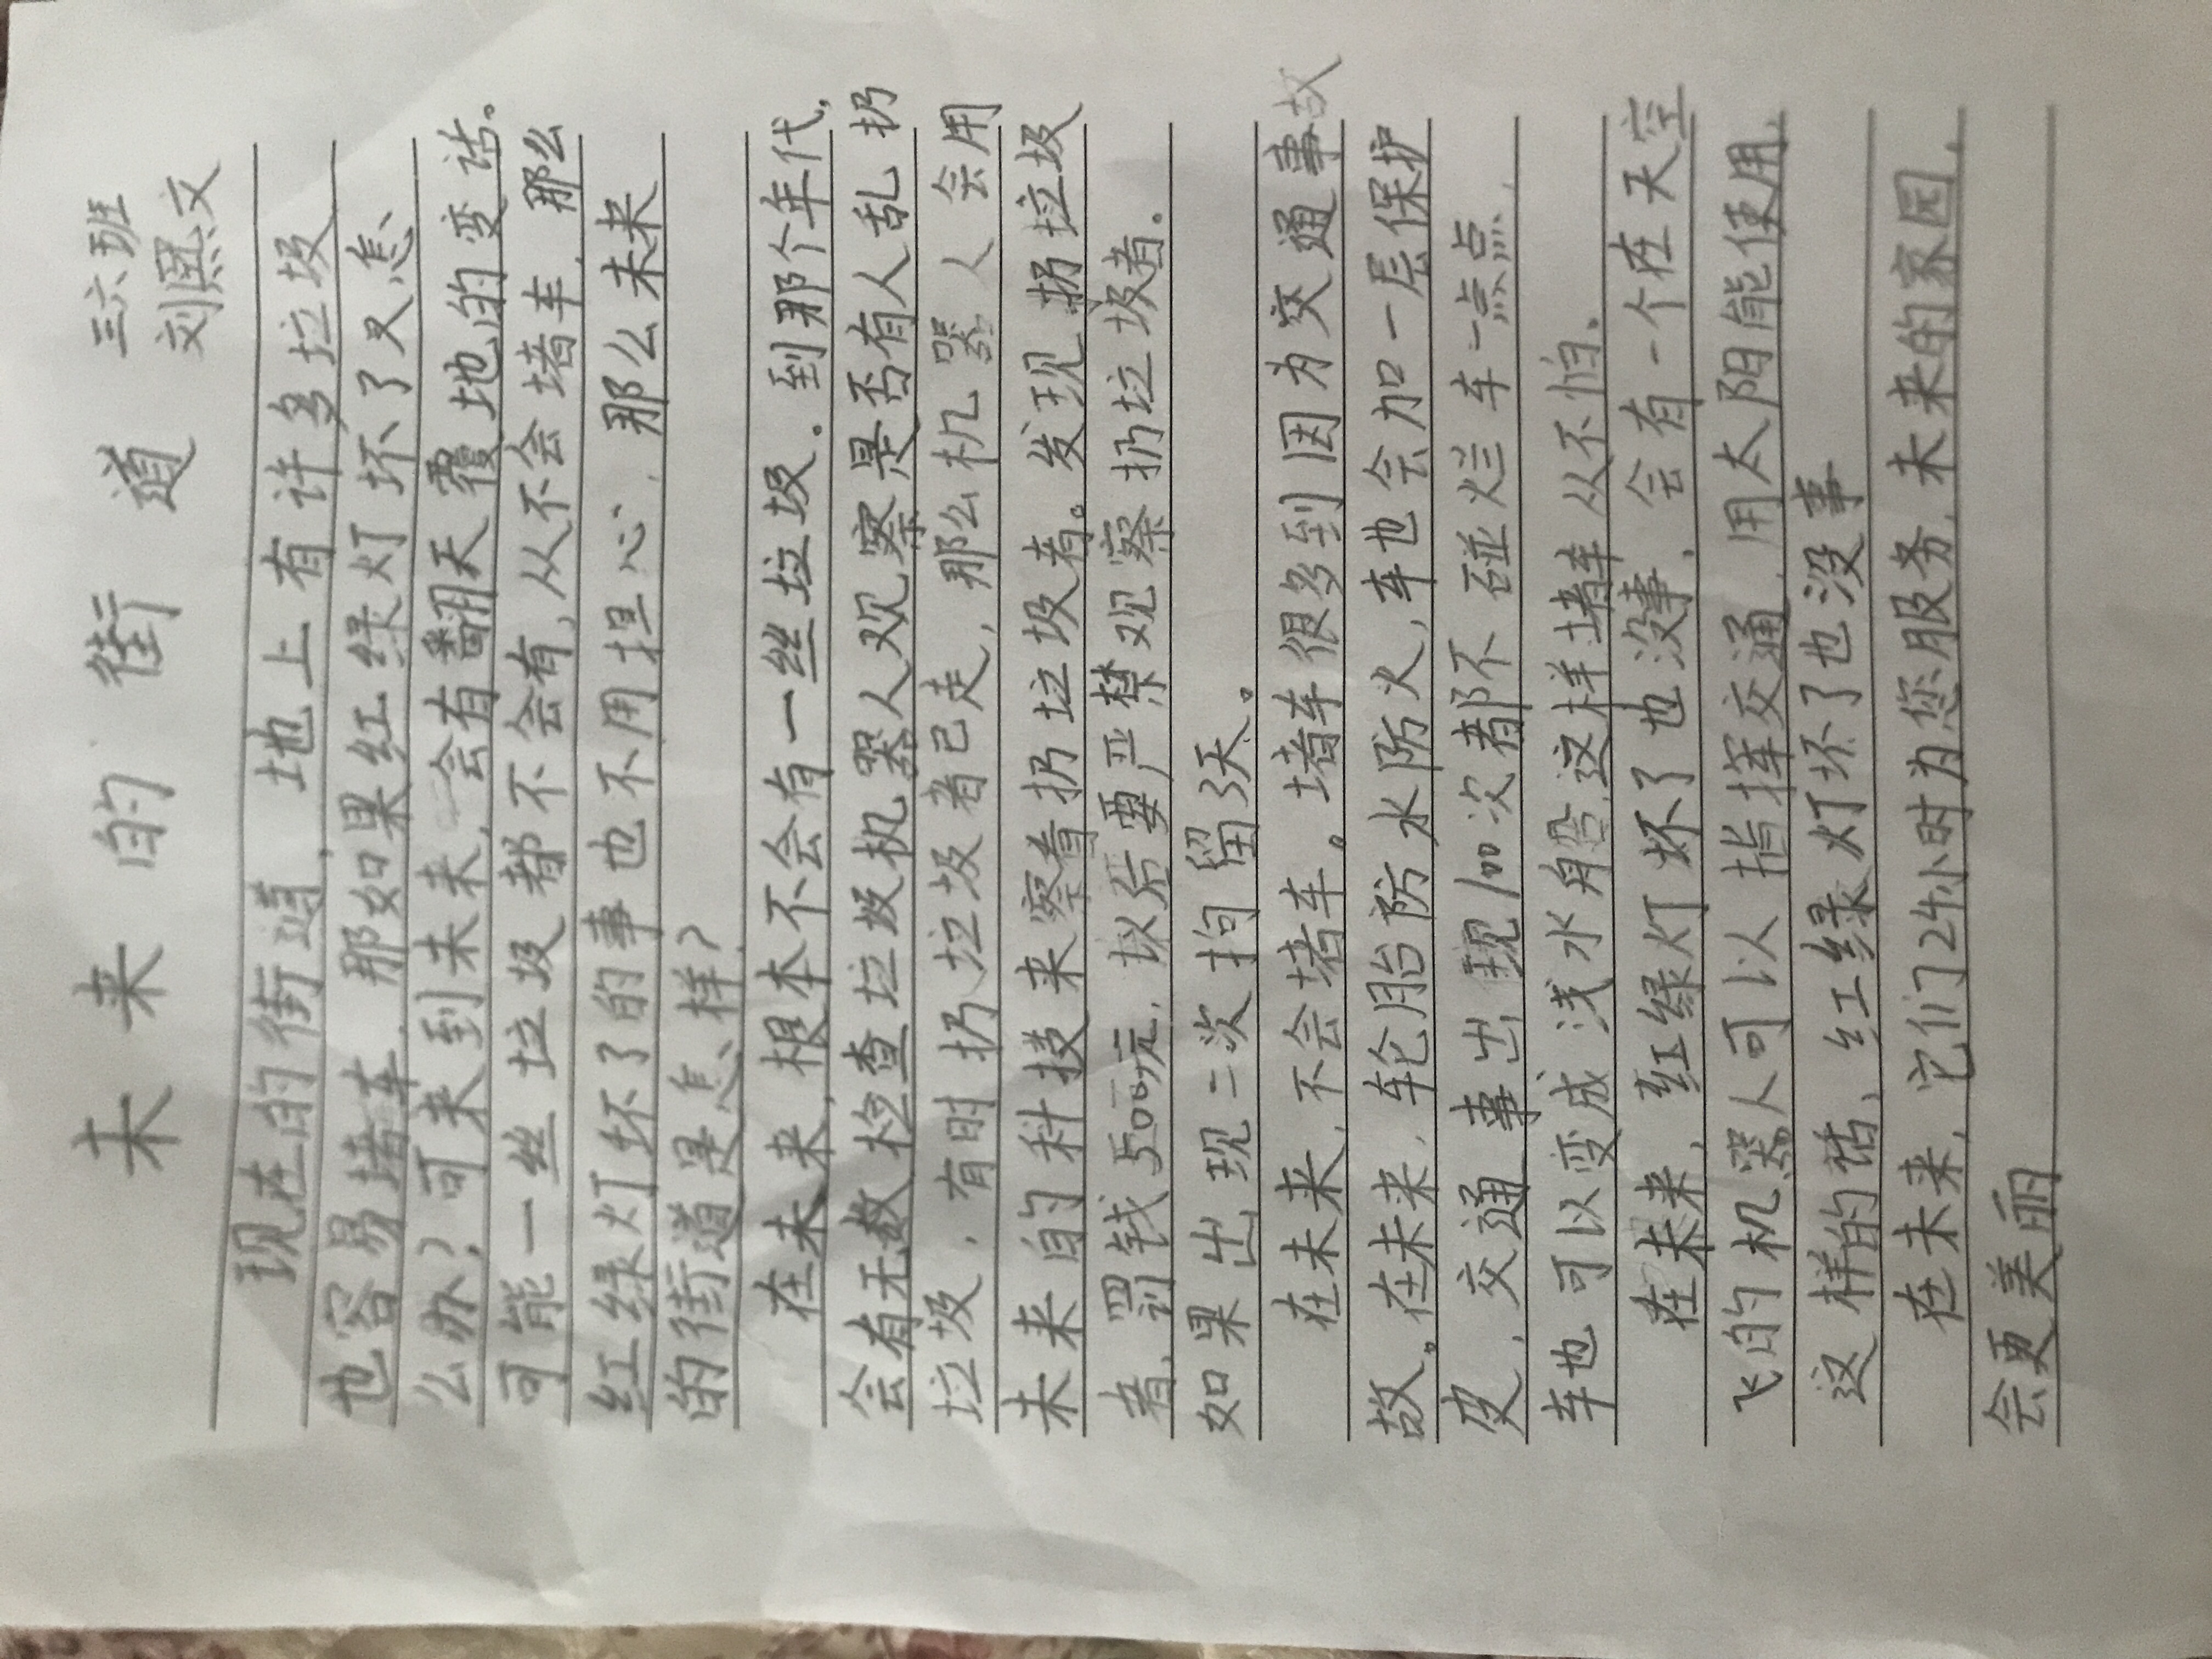 未来的街道
三六班
刘恩文
现在的街道，地上有许多垃圾
也容易堵车，那如果红绿灯坏了又怎
么办？可来到未来，会有翻天覆地的变话。
可能一丝垃圾都不会有，从不会堵车，那么
红绿灯坏了的事也不用担心，那么未来
的街道是怎样？
在未来，根本不会有一丝垃圾。到那个年代，
会有无数检查垃圾机器人观察是否有人乱扔
垃圾，有时扔垃圾者已走，那么机器人会用
未来的科技来察看扔垃圾者。发现扔垃圾
者，罚钱500元，以后要严禁观察扔垃圾者。
如果出现二次拘留3天。
在未来，不会堵车。堵车很多到因为交通事故
故。在未来，车轮胎防水防火，车也会加一层保护
皮，交通事出现100次都不碰烂车一点点，
车也可以变成浅水船这样堵车从不怕。
在未来，红绿灯坏了也没事，会有一个在天空
飞的机器人可以指挥交通，用太阳能使用，
这样的话，红绿灯坏了也没事
在未来，它们24小时为您服务，未来的家园，
会更美丽